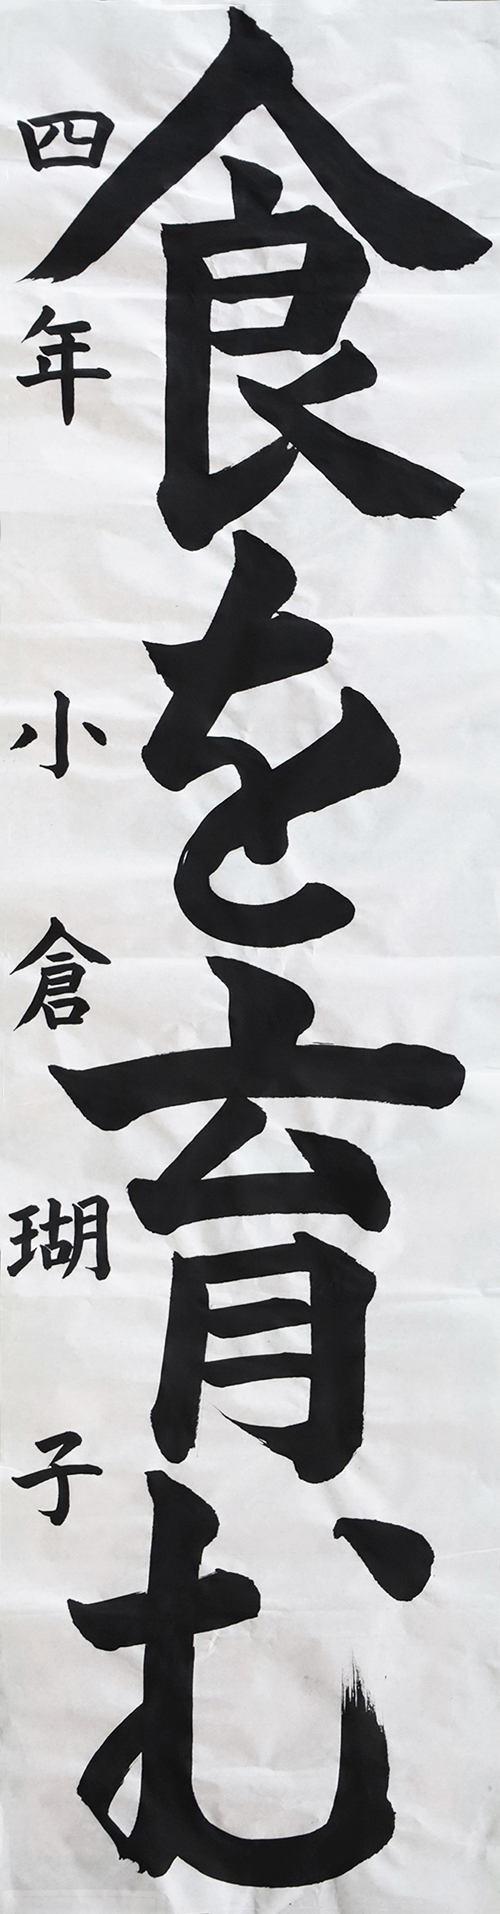 食を育む
四年 小倉瑚子